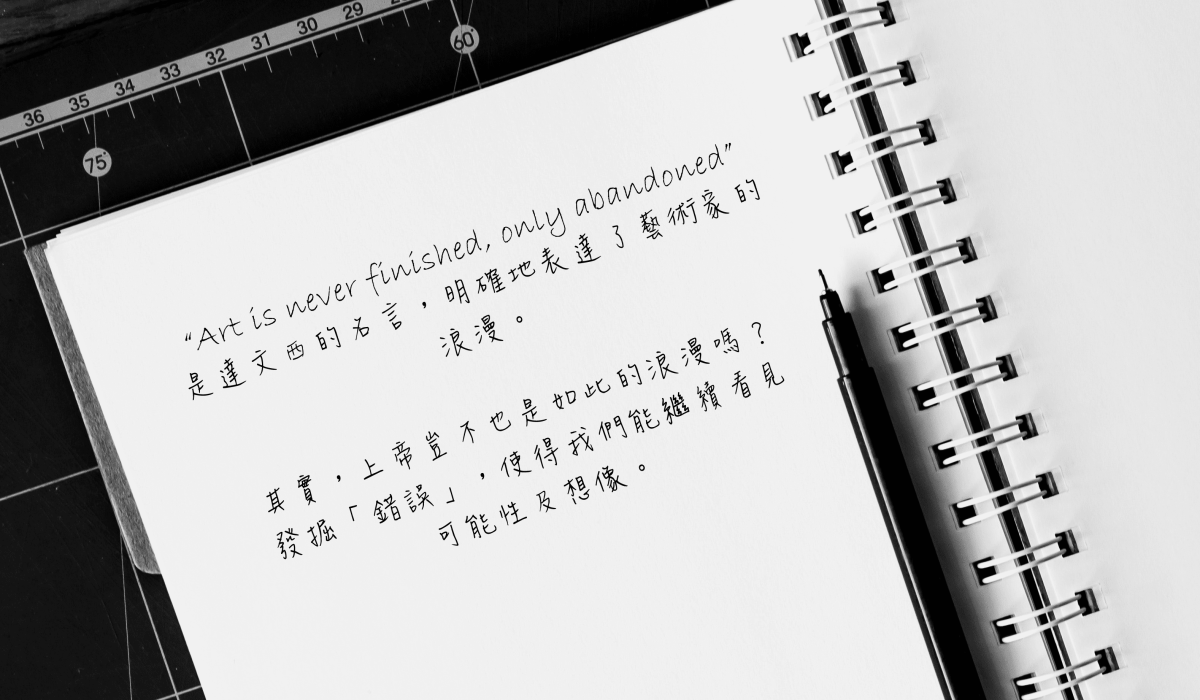 36 35 34 33 32 31 30 29
60°
75°
“Art is never finished, only abandoned”
是達文西的名言，明確地表達了藝術家的
浪漫。
其實，上帝豈不也是如此的浪漫嗎？
發掘「錯誤」，使得我們能繼續看見
可能性及想像。